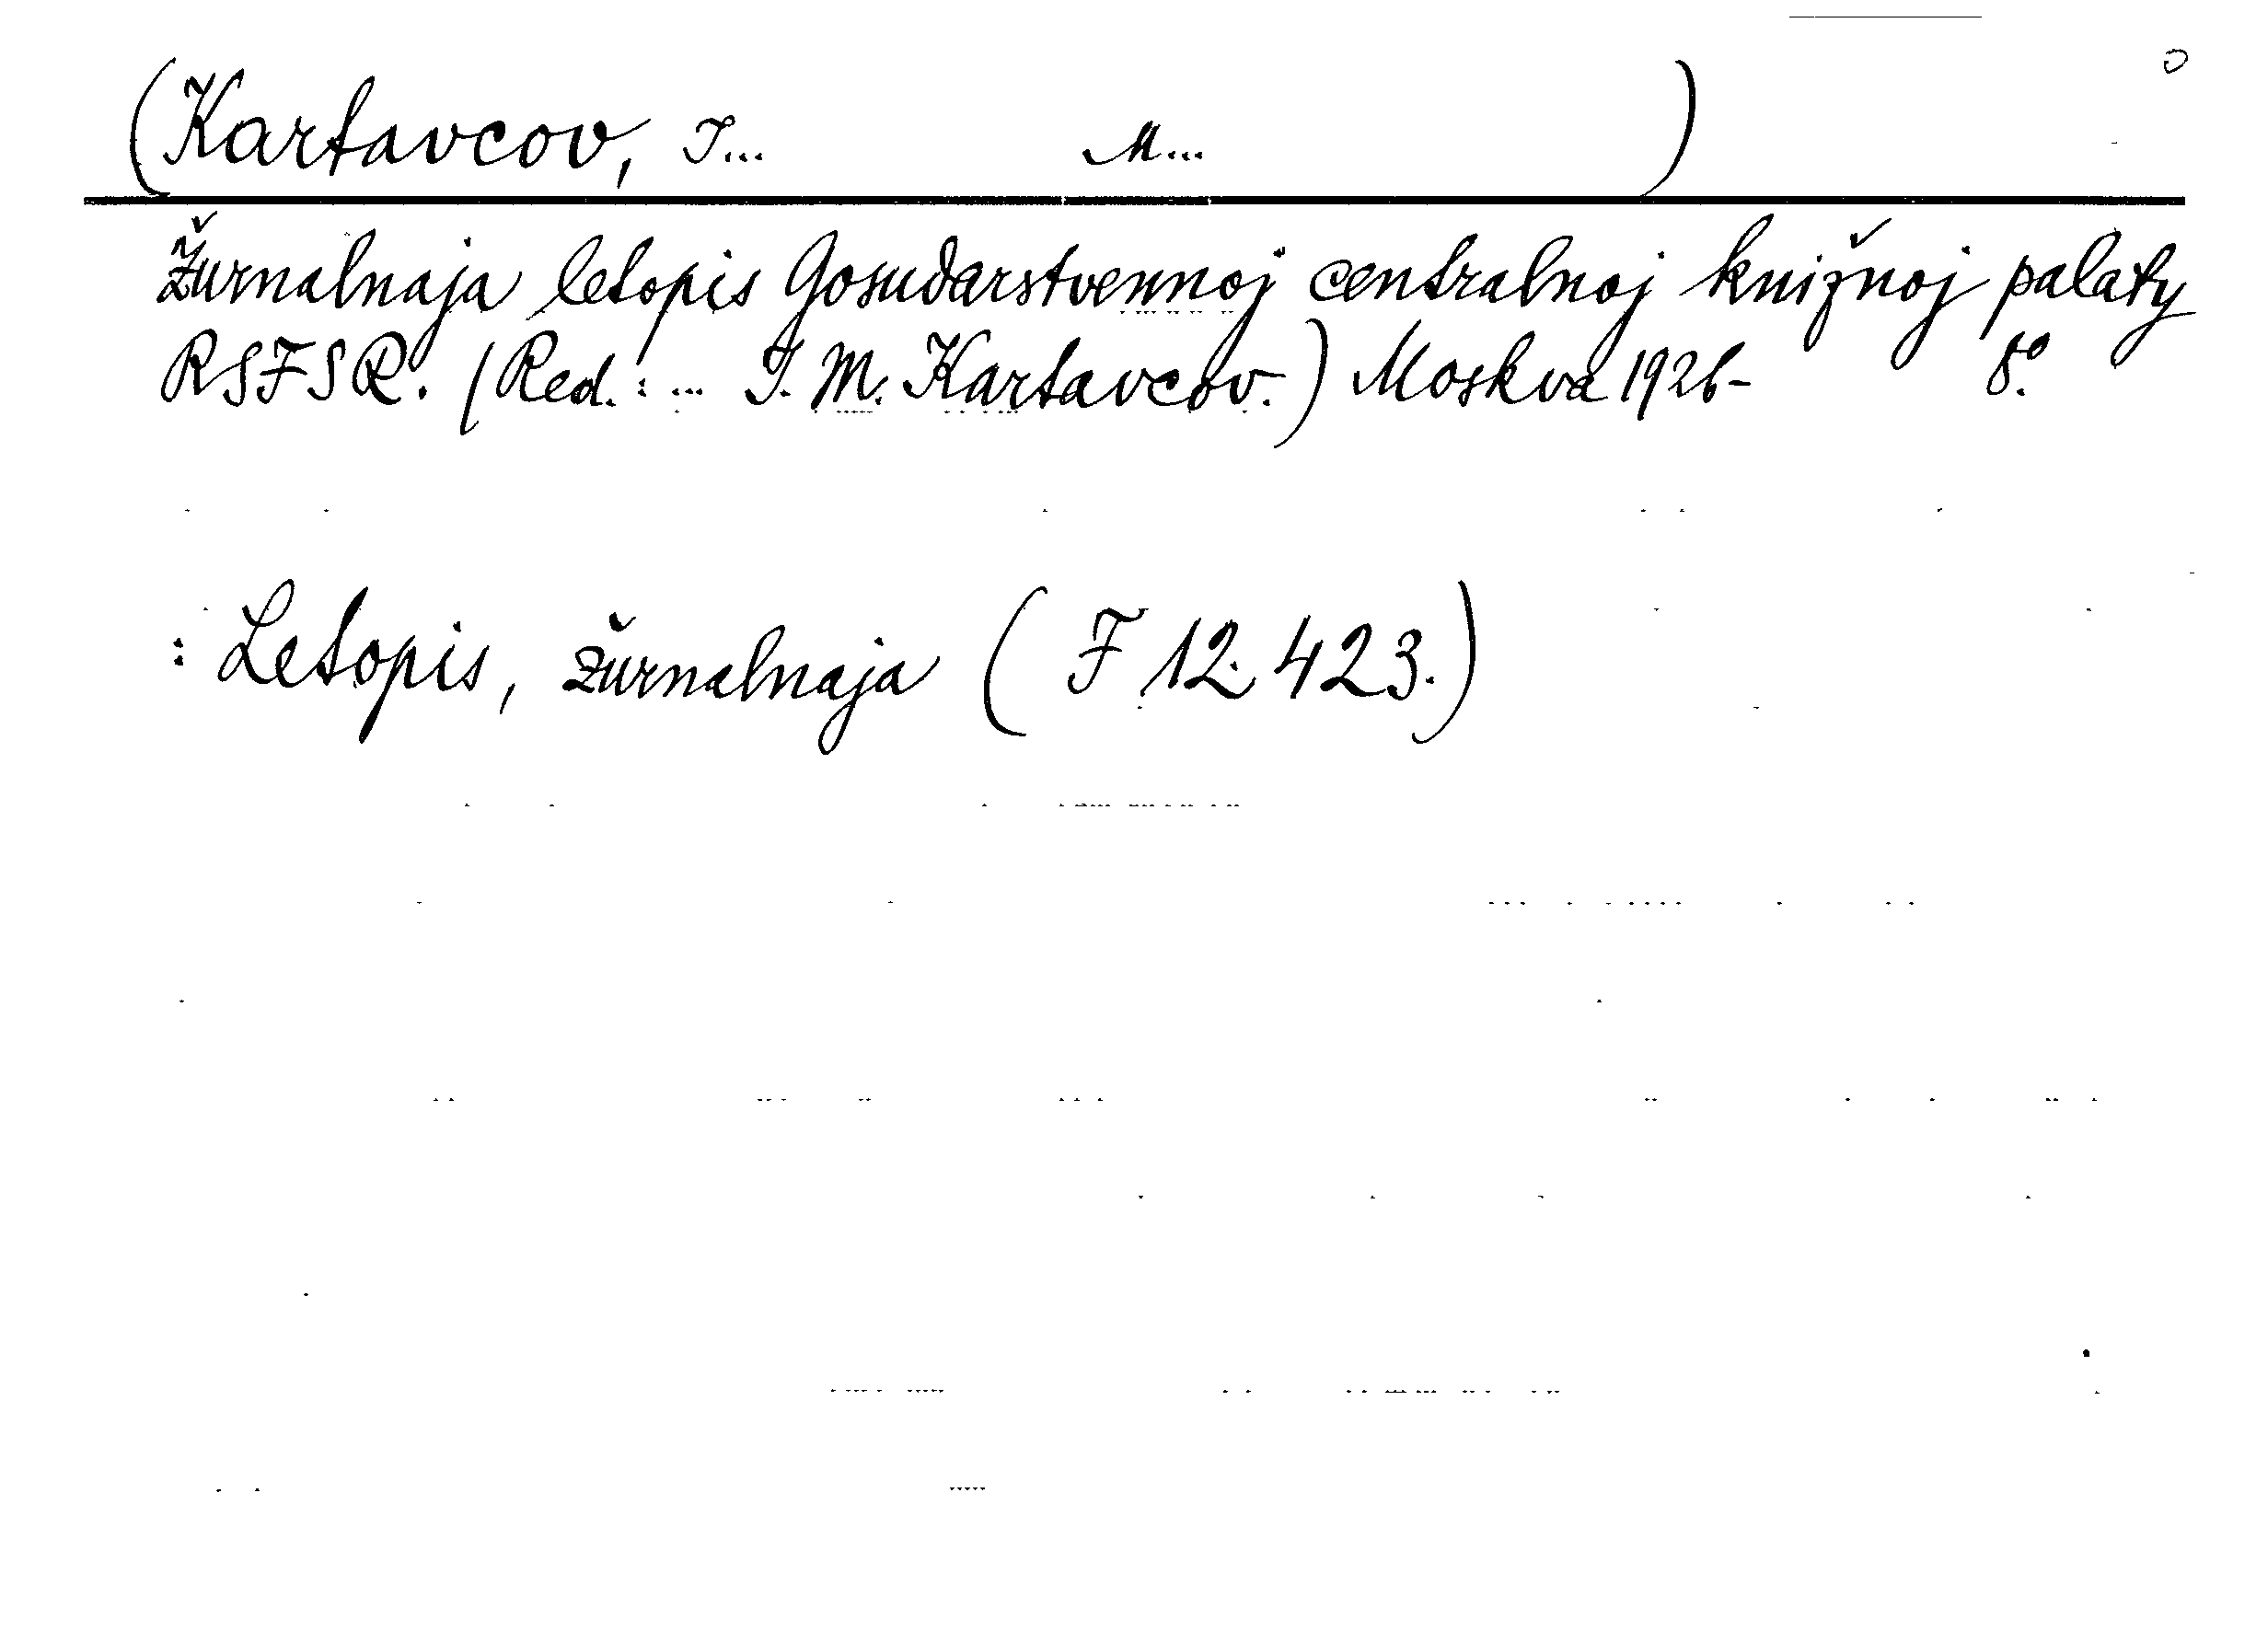 (Kartavcov, I... M... )
Žurnalnaja letopis Gosudarstvennoj centralnoj knižnoj palaty
RSFSR. (Red.: ... I. M. Kartavcov.) Moskva 1926- 8º.
: Letopis, žurnalnaja (F 12.423.)